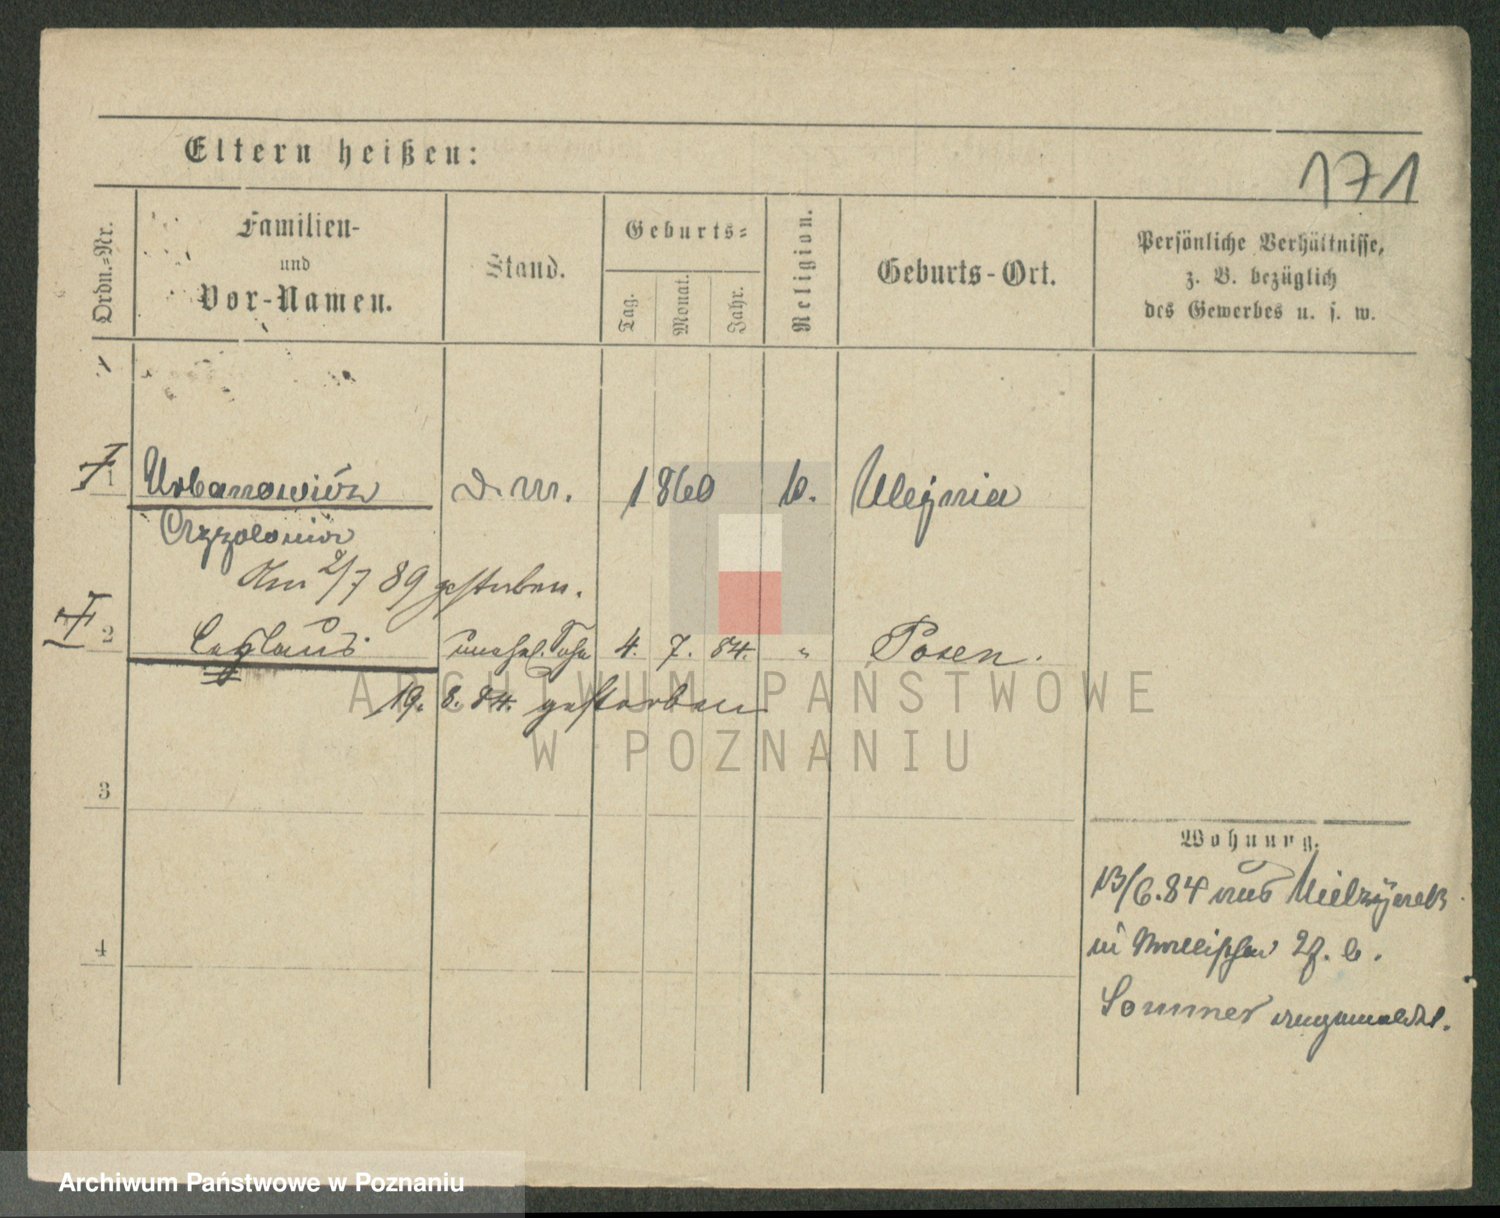 Eltern heißen:
171
Ordn.-Nr.
Familien-
und
Vor-Namen.
Stand.
Geburts-
Tag.
Monat.
Jahr.
Religion.
Geburts-Ort.
Persönliche Verhältnisse,
z. B. bezüglich
des Gewerbes u. s. w.
1 Urbanowicz 1860
Am 2/7 89 gestorben.
2 Ceslaus unehel. 4. 7. 84. " Posen.
19. 8. 84. gestorben
ARCHIWUM PAŃSTWOWE
W POZNANIU
3
4
Wohnung.
13/6.84 aus
in 27. b.
Sommer angemeldet.
Archiwum Państwowe w Poznaniu